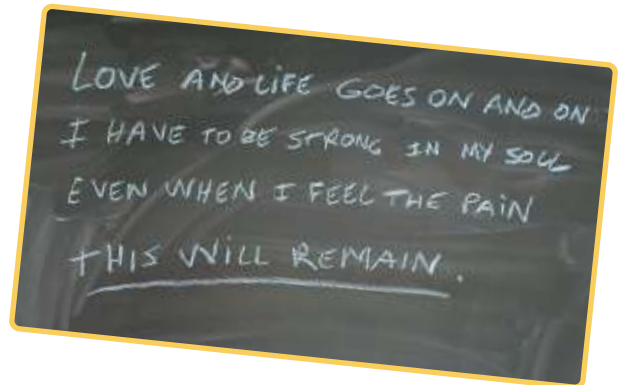 LOVE AND LIFE GOES ON AND ON
I HAVE TO BE STRONG IN MY SOUL
EVEN WHEN I FEEL THE PAIN
THIS WILL REMAIN.